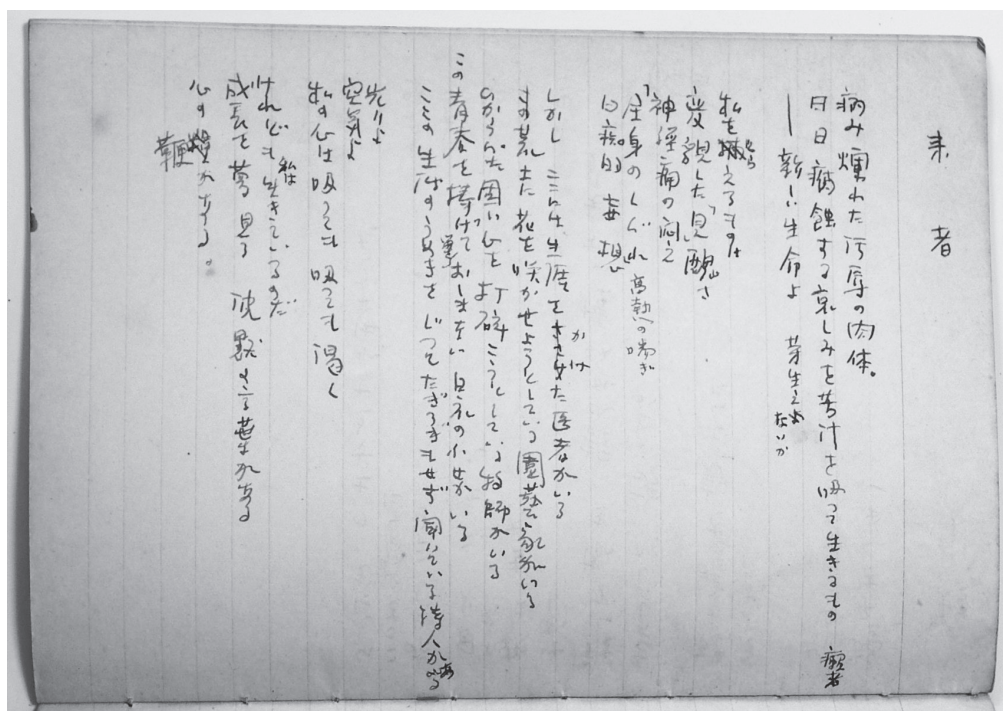 来者
病み爛れた汚辱の肉体。
日日腐蝕する哀しみと苦汁を吸って生きるもの 癩者
―新しい生命よ 芽生えぬ
ないか
私を捕えるものは
とら
変貌した「見醜さ
神経痛の悶え
「全身のしびれ 高熱の喘ぎ
白痴的妄想
しかし ここに生涯をささげた医者がいる
かけ
この荒土に花を咲かせようとしている園芸家がいる
ひからびた固い心を打砕こうとしている牧師がいる
この青春を捧げておしまない 見礼の小女がいる
ここの生活のうめきをじっとたぢろきもせず聞いている詩人がある
光りよ
空気よ
私の心は吸っても吸っても渇く
けれども私は生きているのだ
成長を夢見る 沈黙の言葉がある
心の鞭がある。